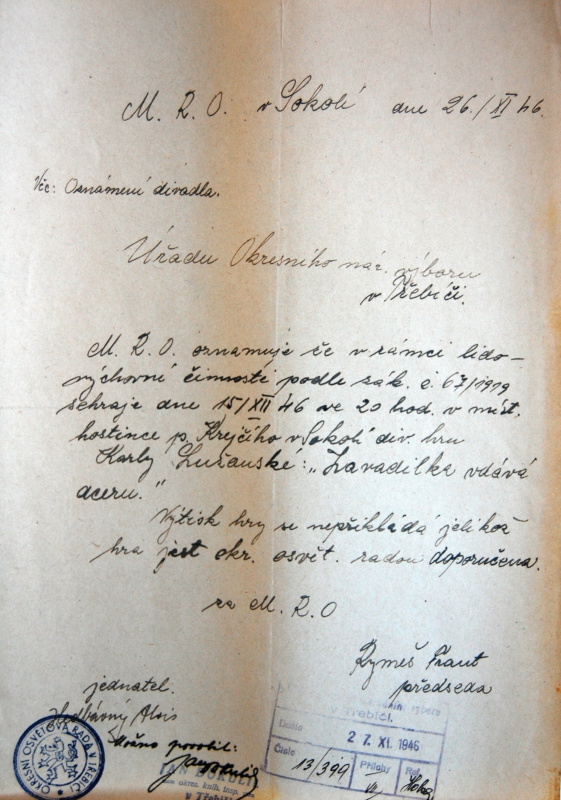 M. R. O. v Sokolí dne 26./XI 46.
Věc: Oznámení divadla.
Úřadu Okresního nár. výboru
v Třebíči.
M. R. O. oznamuje že v rámci lido-
výchovní činnosti podle zák. č. 67/1919
sehraje dne 15/XII 46 ve 20 hod. v míst.
hostince p. Krejčího v Sokolí div. hru
Karly Lušanské: „Zavadilka vdává
dceru."
Výtisk hry se nepřikládá jelikož
hra jest okr. osvět. radou doporučena.
za M. R. O
předseda
jednatel.
Alois
OKRESNÍ OSVĚTOVÁ RADA V TŘEBÍČI
v Třebíči
v Třebíči.
Došlo
27. XI. 1946
Číslo 13/399
Přílohy
Ref.